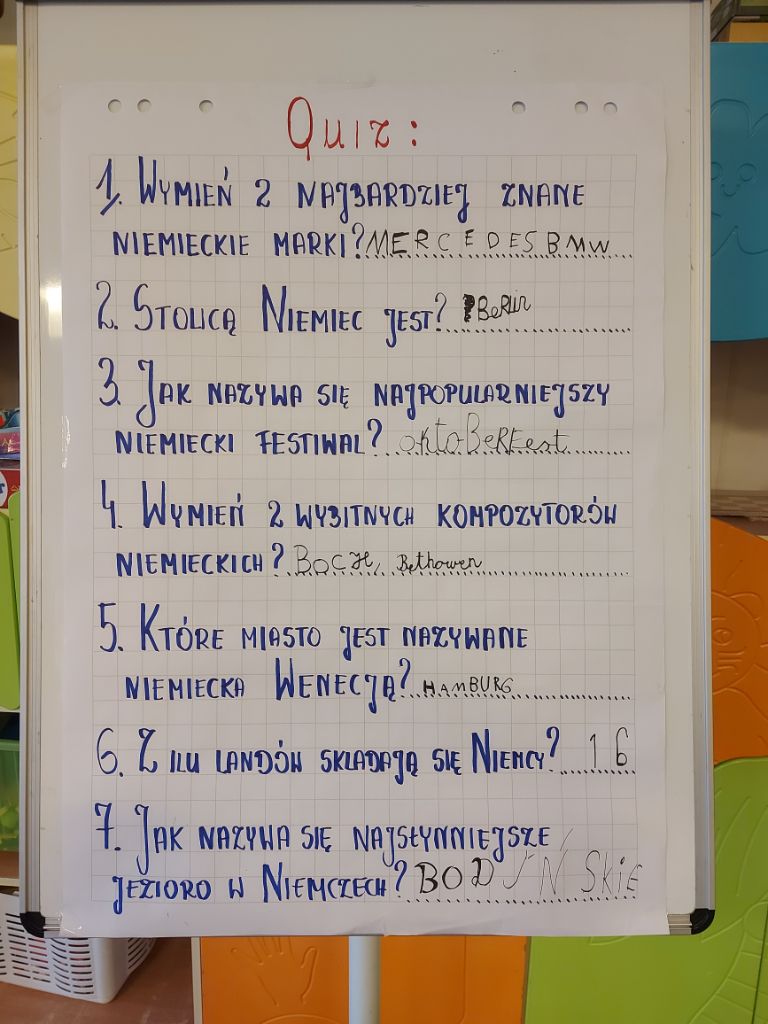 Quiz:
1. WYMIEŃ 2 NAJBARDZIEJ ZNANE
NIEMIECKIE MARKI? MERCEDES BMW
2. STOLICĄ NIEMIEC JEST? BERLIN
3. JAK NAZYWA SIĘ NAJPOPULARNIEJSZY
NIEMIECKI FESTIWAL? oktoBeRFest
4. WYMIEŃ 2 WYBITNYCH KOMPOZYTORÓW
NIEMIECKICH? BOCH, Bethowen
5. KTÓRE MIASTO JEST NAZYWANE
NIEMIECKA WENECJĄ? HAMBURG
6. Z ILU LANDÓW SKLADAJĄ SIĘ NIEMCY? 16
7. JAK NAZYWA SIĘ NAJSŁYNNIEJSZE
JEZIORO W NIEMCZECH? BODŃSKIE